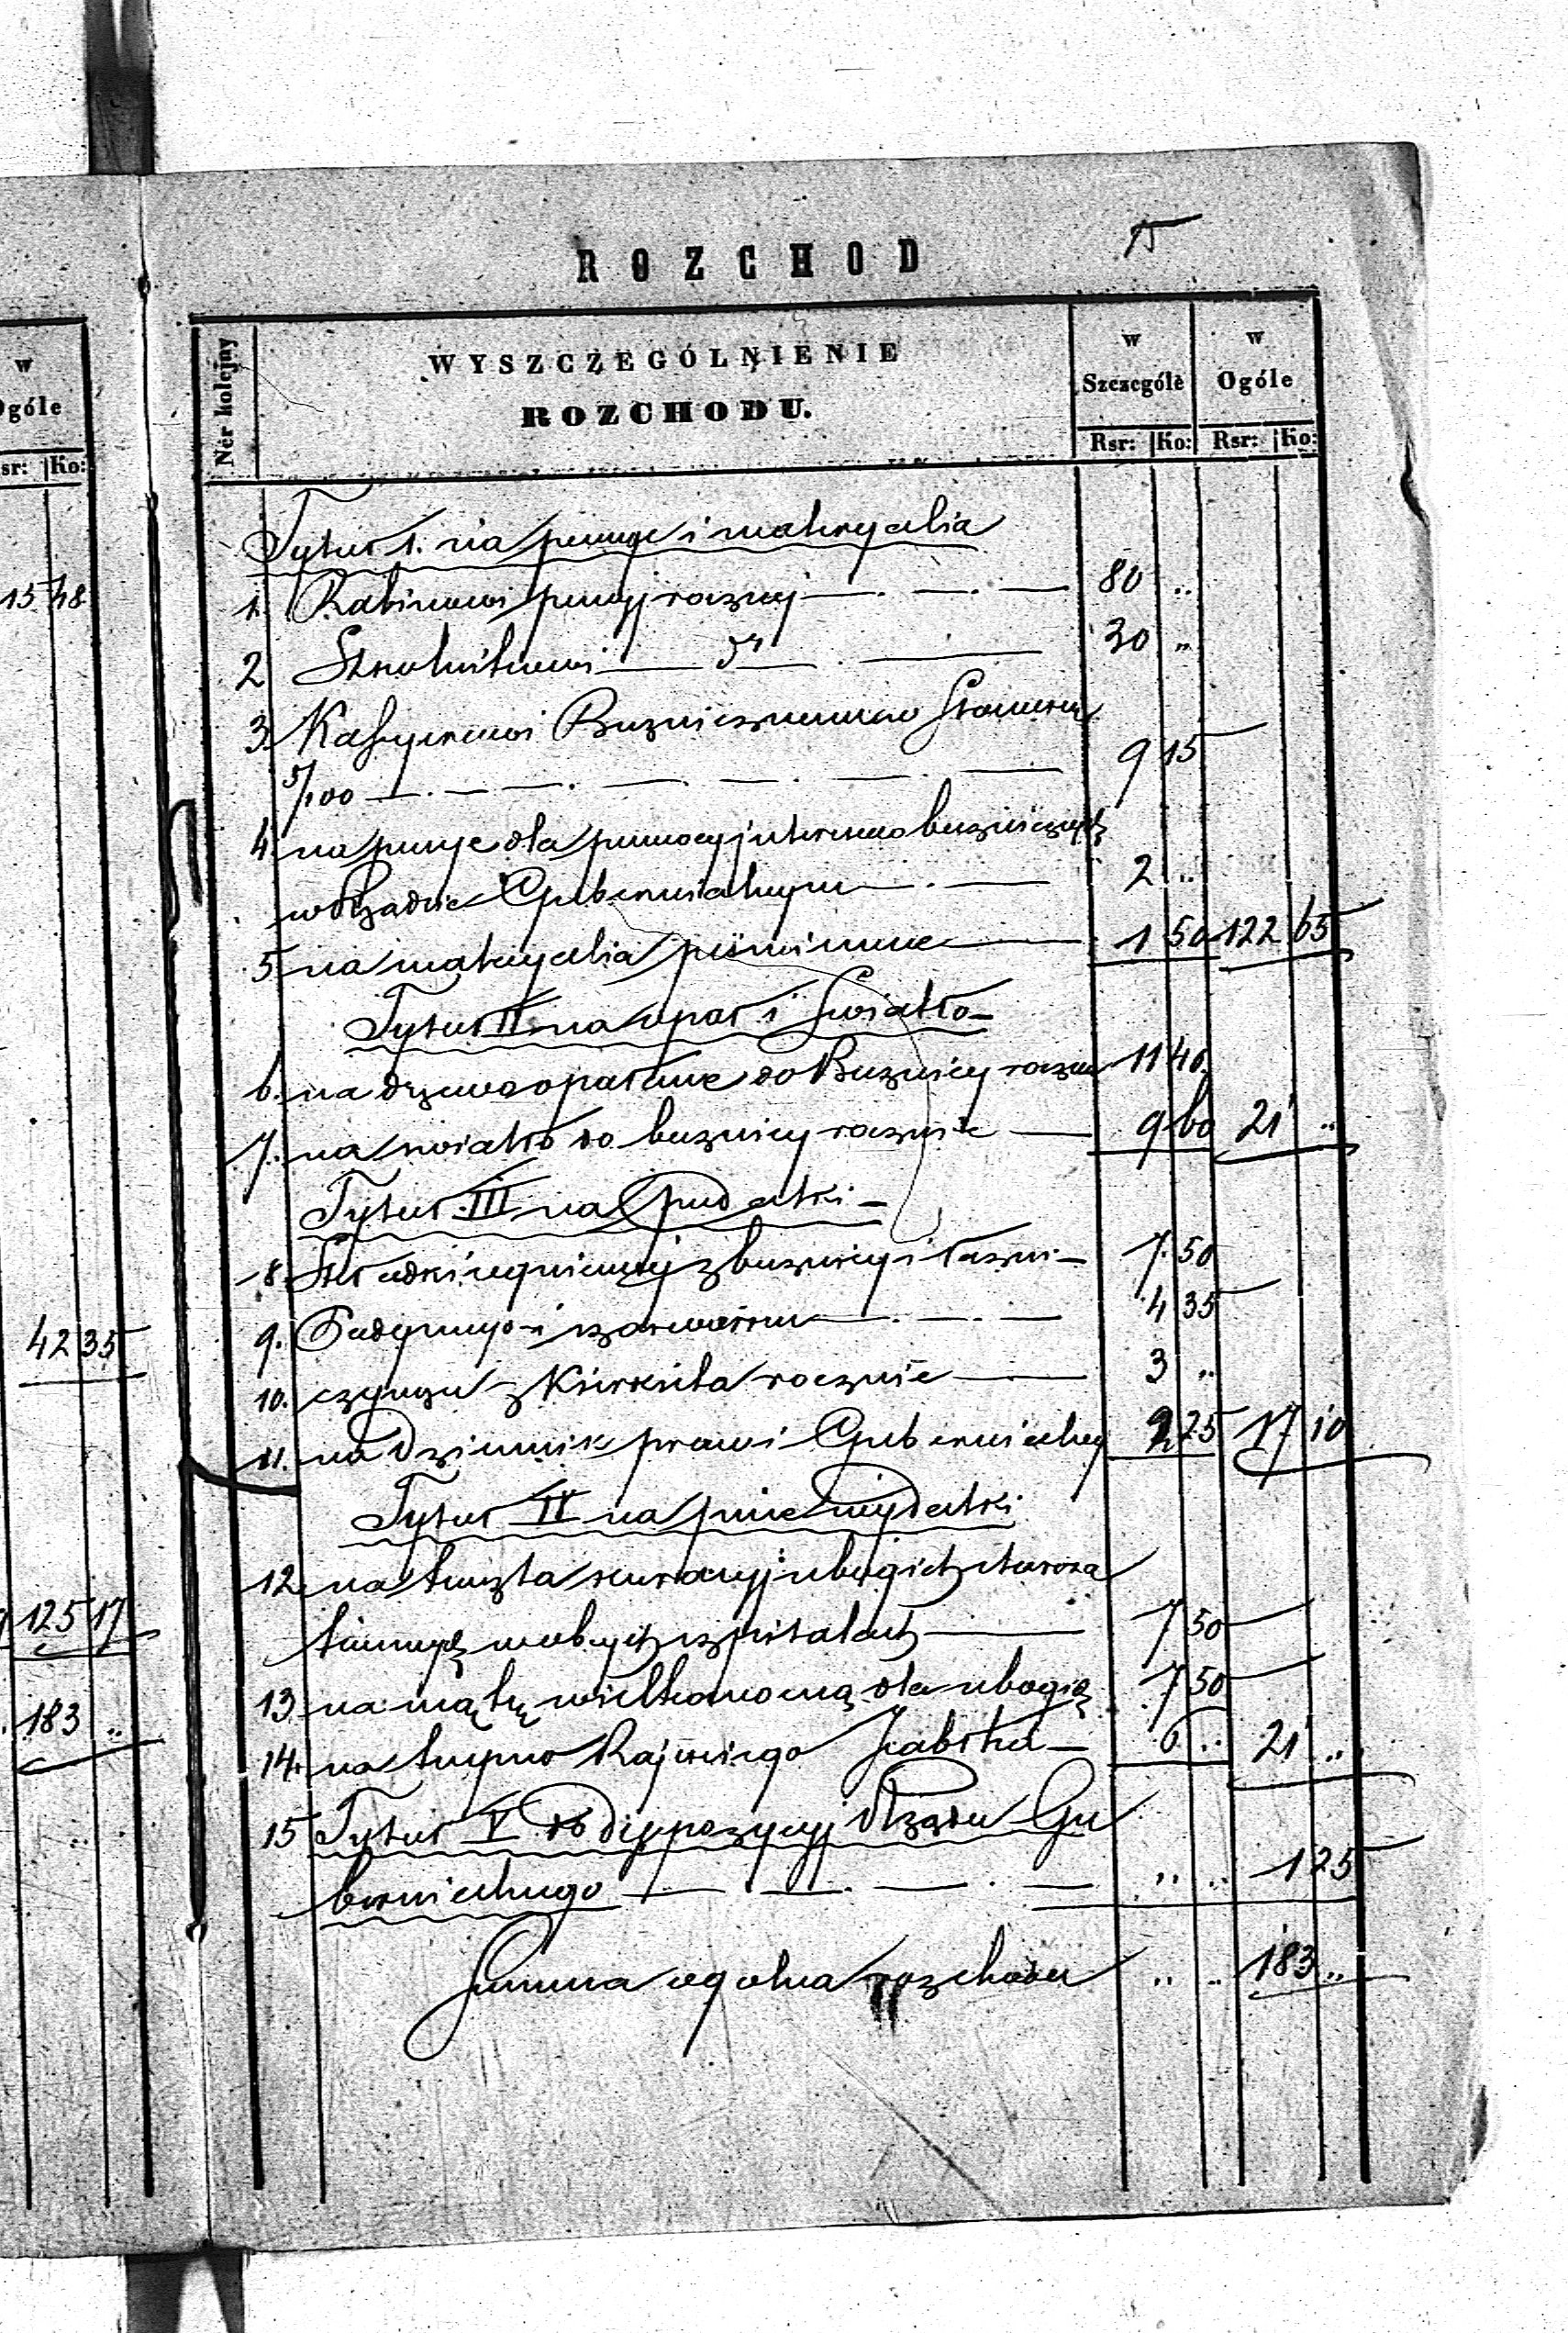 w
Ogóle
Rsr: Ko:
15 48
42 35
125 17
183 ..
ROZCHOD
15
Nér kolejny
WYSZCZEGÓLNIENIE
ROZCHODU.
w
Szczególe
w
Ogóle
Rsr: Ko: Rsr: Ko:
Tytuł 1. na pensye i materyalia
1. Rabinowi pensyi rocznej 80 ..
2 Szkolnikowi dto 30 ..
3. Kassyerowi Bożnicznemu
5/100 9 15
4 na pensye dla pomocy interesów bożniczych
w Rządzie Gubernialnym 2 ..
5 na materyalia piśmienne 1 50 122 65
Tytuł II na opał i Swiatło
6. na drzewo opałowe do Bożnicy roczn 11 40.
7. na swiatło do bożnicy rocznie 9 60 21 ..
Tytuł III na podatki
8. Składki ogniowej z bożnicy i łazni 7. 50
9. Podymnego i szarwarku 4 35
10. czynszu z Kierkuta rocznie 3 ..
11. na Dziennik praw i Gubernialny 2 25 17 10
Tytuł IV na inne wydatki
12 na koszta kuracyi ubogich staroza
konnych w obcych szpitalach 7 50
13 na mąkę wielkanocną dla ubogich 7 50
14. na kupno Rajskiego Jabłka 6 .. 21 ..
15 Tytuł V do dyspozycyj Rządu Gu
bernialnego .. .. 1 25
Summa ogolna rozchodu .. .. 183 ..